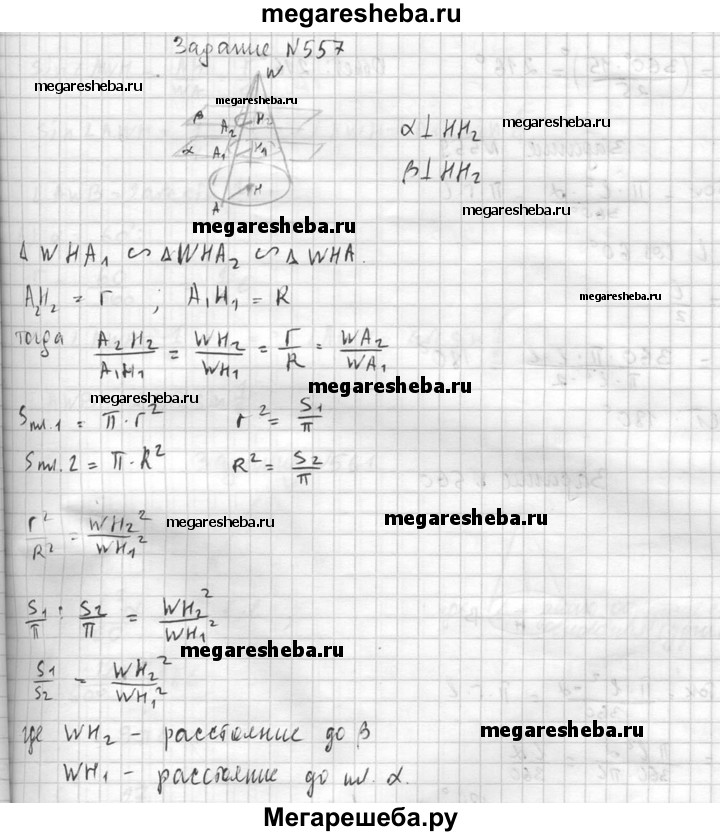 megaresheba.ru
Задание N557
megaresheba.ru
megaresheba.ru
megaresheba.ru
W
β A₂ H₂
α A₁ H₁
H
A
α ⊥ HH₂
β ⊥ HH₂
megaresheba.ru
megaresheba.ru
Δ WHA₁ ∽ ΔWHA₂ ∽ Δ WHA.
A₂H₂ = r ; A₁H₁ = R
megaresheba.ru
тогда A₂H₂/A₁H₁ = WH₂/WH₁ = r/R = WA₂/WA₁
megaresheba.ru
megaresheba.ru
Sпл.1 = π · r² r² = S1/π
Sпл.2 = π · R² R² = S2/π
r²/R² = WH₂²/WH₁²
megaresheba.ru
megaresheba.ru
S1/π : S2/π = WH₂²/WH₁²
megaresheba.ru
S1/S2 = WH₂²/WH₁²
где WH₂ - расстояние до β
megaresheba.ru
WH₁ - расстояние до пл. α.
Мегарешеба.ру